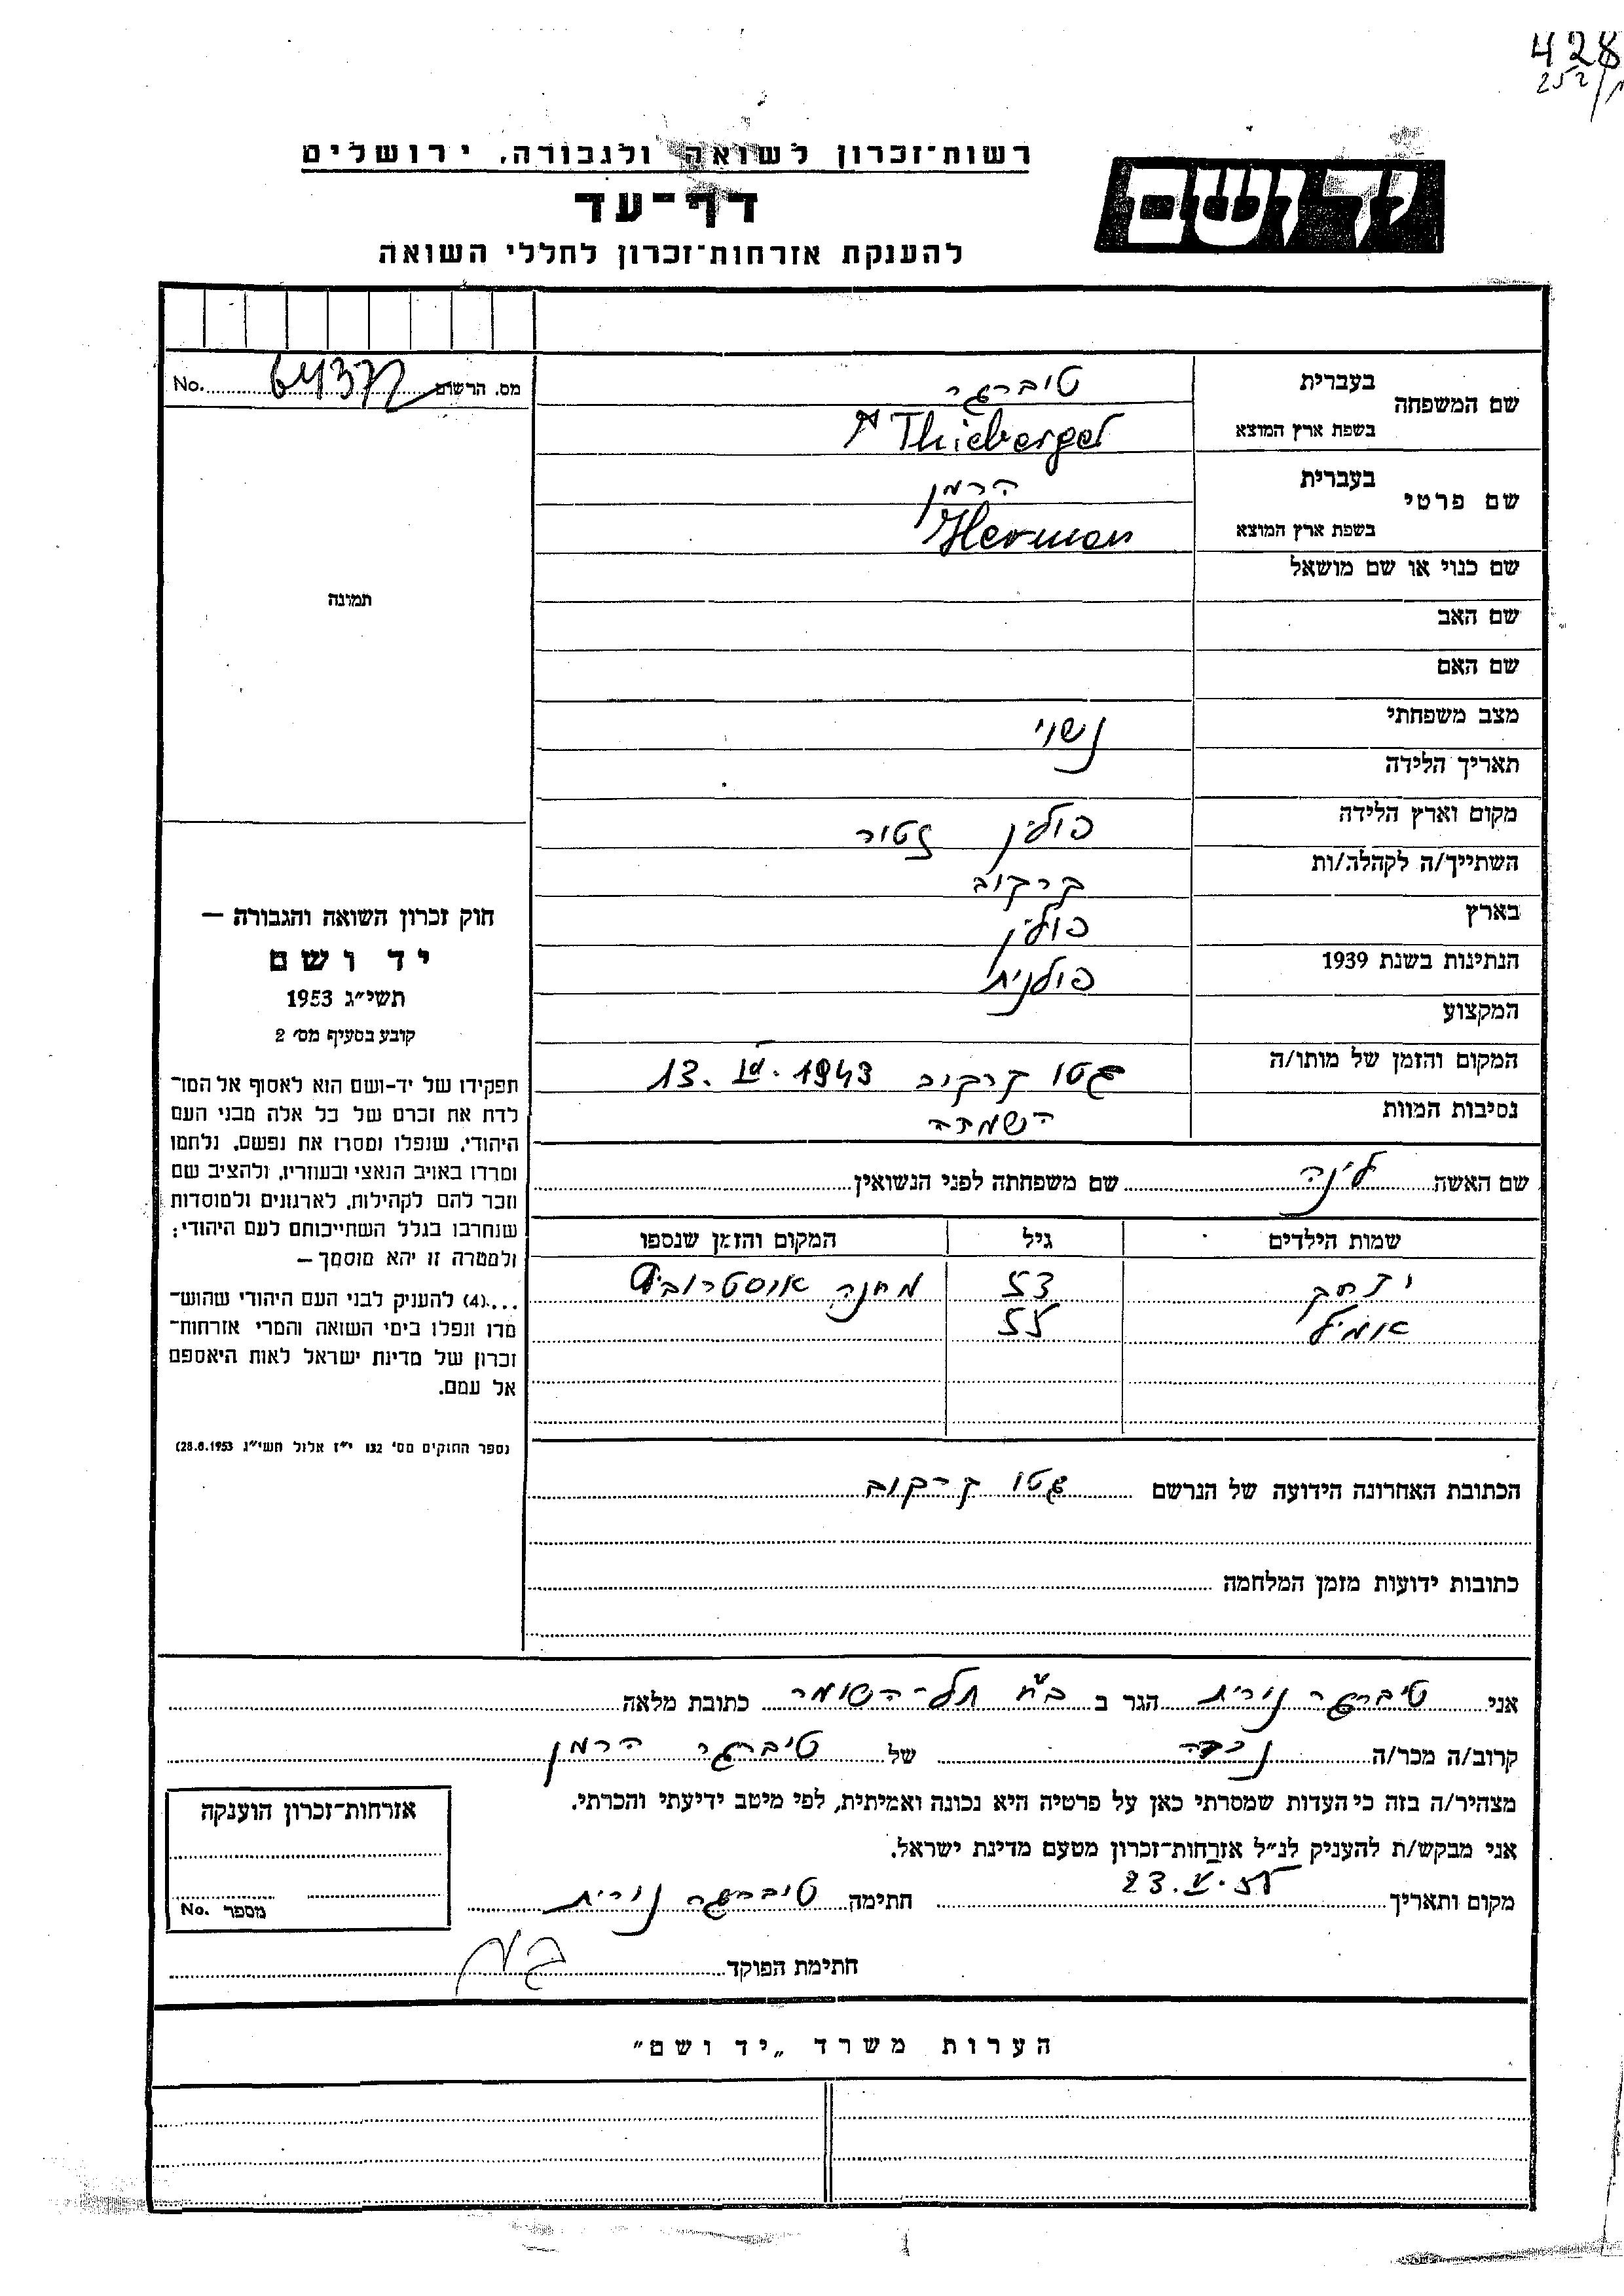 428
252/
רשות־זכרון לשואה ולגבורה, ירושלים
יד ושם
דף־עד
להענקת אזרחות־זכרון לחללי השואה
מס. הרשום 64372 No.
שם המשפחה
בעברית טיברגר
בשפת ארץ המוצא Thieberger
שם פרטי
בעברית הרמן
בשפת ארץ המוצא Herman
שם כנוי או שם מושאל
תמונה
שם האב
שם האם
מצב משפחתי נשוי
תאריך הלידה
מקום וארץ הלידה פולין זטור
השתייך/ה לקהלה/ות קרקוב
בארץ פולין
הנתינות בשנת 1939 פולנית
המקצוע
המקום והזמן של מותו/ה גטו קרקוב 1943 .13
נסיבות המוות השמדה
חוק זכרון השואה והגבורה —
יד ושם
תשי״ג 1953
קובע בסעיף מס׳ 2
תפקידו של יד-ושם הוא לאסוף אל המו־
לדת את זכרם של כל אלה מבני העם
היהודי, שנפלו ומסרו את נפשם, נלחמו
ומרדו באויב הנאצי ובעוזריו, ולהציב שם
וזכר להם לקהילות, לארגונים ולמוסדות
שנחרבו בגלל השתייכותם לעם היהודי;
ולמטרה זו יהא מוסמך —
....(4) להעניק לבני העם היהודי שהוש־
מדו ונפלו בימי השואה והמרי אזרחות־
זכרון של מדינת ישראל לאות היאספם
אל עמם.
(ספר החוקים מס׳ 132 י״ז אלול תשי״ג 28.8.1953)
שם האשה לינה שם משפחתה לפני הנשואין
שמות הילדים גיל המקום והזמן שנספו
יצחק 53 מחנה
אומיל 55
הכתובת האחרונה הידועה של הנרשם גטו קרקוב
כתובות ידועות מזמן המלחמה
אני טיברגר נורית הגר ב בי״ח תל-השומר כתובת מלאה
קרוב/ה מכר/ה נכדה של טיברגר הרמן
מצהיר/ה בזה כי העדות שמסרתי כאן על פרטיה היא נכונה ואמיתית, לפי מיטב ידיעתי והכרתי.
אני מבקש/ת להעניק לנ״ל אזרחות־זכרון מטעם מדינת ישראל.
מקום ותאריך 23.V.55 חתימה טיברגר נורית
חתימת הפוקד
אזרחות־זכרון הוענקה
מספר No.
הערות משרד „יד ושם״